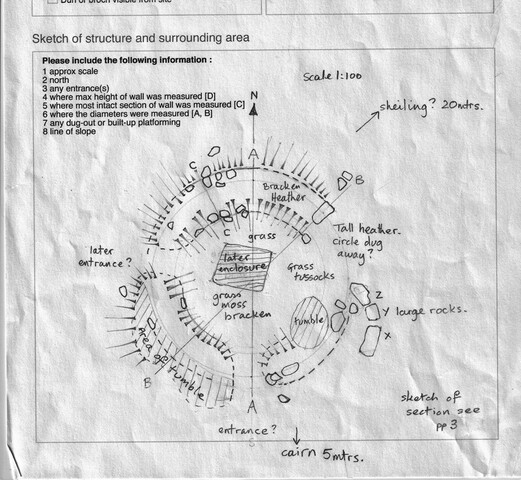 Dun or broch visible from site
Sketch of structure and surrounding area
Please include the following information :
1 approx scale
2 north
3 any entrance(s)
4 where max height of wall was measured [D]
5 where most intact section of wall was measured [C]
6 where the diameters were measured [A, B]
7 any dug-out or built-up platforming
8 line of slope
Scale 1:100
N
sheiling? 20mtrs.
A
C
B
Bracken
Heather
Tall heather.
circle dug
away?
C
grass
later
entrance?
later
enclosure
Grass
tussocks
grass
moss
bracken
tumble
Z
Y large rocks.
X
Area of tumble
B
A
sketch of
section see
pp 3
entrance?
S
cairn 5mtrs.